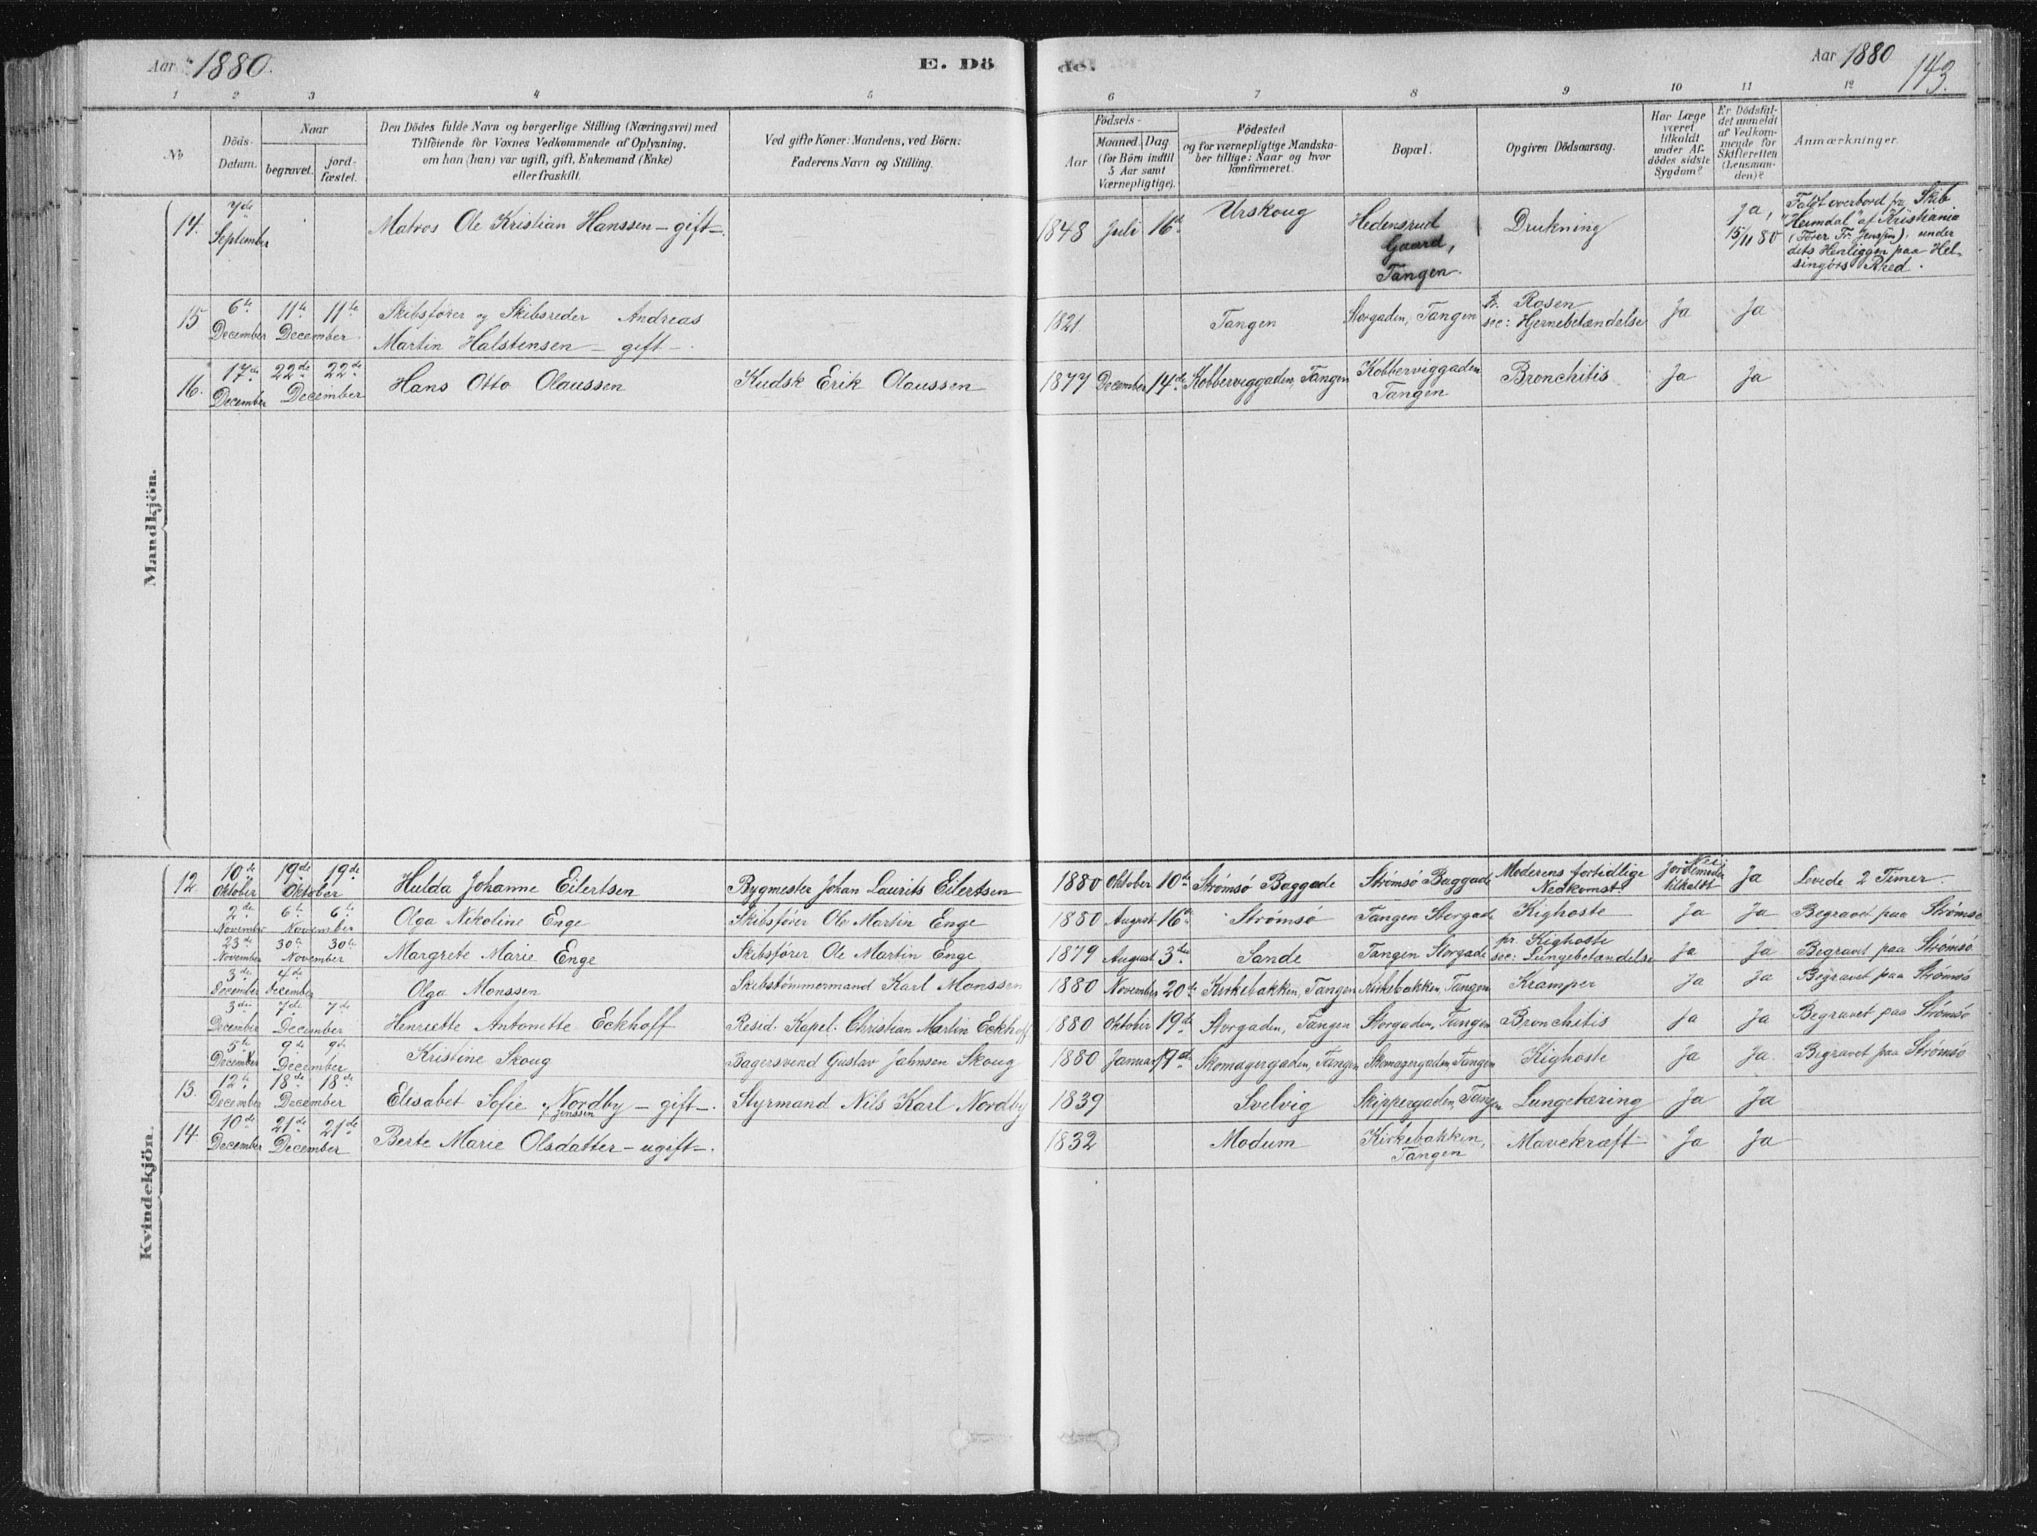 Aar 1880.
E. Dö
de.
Aar 1880
143.
1 2 3 4 5 6 7 8 9 10 11 12
No
Döds-
Datum.
Naar
begravet.
jord-
fæstet.
Den Dödes fulde Navn og borgerlige Stilling (Næringsvei) med
Tilföiende for Voxnes Vedkommende af Oplysning.
om han (hun) var ugift, gift, Enkemand (Enke)
eller fraskilt.
Ved gifte Koner: Mandens, ved Börn:
Faderens Navn og Stilling.
Födsels-
Aar
Maaned.
Dag
(for Börn indtil
5 Aar samt
Værnepligtige).
Födested
og for værnepligtige Mandska-
ber tillige: Naar og hvor
konfirmeret.
Bopæl.
Opgiven Dödsaarsag.
Har Læge
været
tilkaldt
under Af-
dödes sidste
Sygdom?
Er Dödsfal-
det anmeldt
af Vedkom-
mende for
Skifteretten
(Lensman-
den)?
Anmærkninger.
Mandkjön.
14. 7de September Matros Ole Kristian Hanssen – gift –. 1848 Juli 16de Urskoug Hedensrud Gaard, Tangen. Drukning Ja, 15/11 80 Faldt overbord fra Skib
"Heimdal" af Kristiania
(Fører Fr. Jenssen), under
dets Henliggen paa Hel-
singørs Rhed.
15 6te December 11te 11te December Skibsfører og Skibsreder Andreas
Martin Halstensen – gift –. 1821. Tangen Storgaden, Tangen pr. Rosen
sec: Hjernebetændelse Ja Ja
16. 17de December 22de 22de December Hans Otto Olaussen Kudsk Erik Olaussen 1877 December 14de Kobberviggaden, Tangen Kobberviggaden Tangen Bronchitis Ja Ja
Kvindekjön.
12 10de Oktober 19de 19de Oktober Hulda Johanne Eilertsen Bygmester Johan Laurits Eilertsen 1880 Oktober 10de Strømsø Baggade Strømsø Baggade Moderens fortidlige Nedkomst Nei Jordemoder tilkaldt Ja Levede 2 Timer.
2de November 6te 6te November Olga Nekoline Enge Skibsfører Ole Martin Enge 1880 August 16de Strømsø Tangen Storgade Kighoste Ja Ja Begravet paa Strømsø
23de November 30te 30te November Margrete Marie Enge Skibsfører Ole Martin Enge 1879 August 3die Sande Tangen Storgade pr. Kighoste
sec: Lungebetændelse Ja Ja Begravet paa Strømsø
3die December 4de December Olga Monssen Skibstømmermand Karl Monssen 1880 November 20de Kirkebakken, Tangen Kirkebakken, Tangen Kramper Ja Ja Begravet paa Strømsø
3die December 7de 7de December Henriette Antonette Eckhoff Resid. Kapel. Christian Martin Eckhoff 1880 Oktober 19de Storgaden, Tangen Storgaden, Tangen Bronchitis Ja Ja Begravet paa Strømsø
5te December 9de 9de December Kristine Skoug Bagersvend Gustav Jahnsen Skoug 1880 Januar 19de Skomagergaden, Tangen Skomagergaden, Tangen Kighoste Ja Ja. Begravet paa Strømsø
13. 12te December 18de 18de December Elisabet Sofie Nordby – gift –. f. Jenssen Styrmand Nils Karl Nordby 1839 Svelvig Skippergaden, Tangen Lungetæring Ja Ja
14. 10de December 21de 21de December Berte Marie Olsdatter – ugift –. 1832 Modum Kirkebakken, Tangen Mavekræft Ja Ja